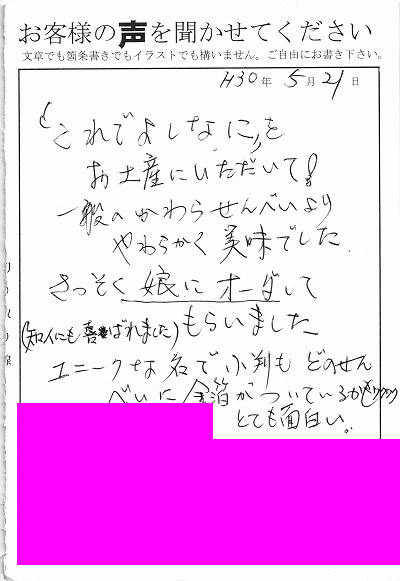 お客様の声を聞かせてください
文章でも箇条書きでもイラストでも構いません。ご自由にお書き下さい。
H30年 5月21日
“これでよしなに”を
お土産にいただいて!
一般のかわらせんべいより
やわらかく 美味でした
さっそく 娘に オーダして
(知人にも喜ばれました) もらいました
ユニークな名で 小判も どのせん
べいに 金箔が ついているかも ワクワク
とても面白い。